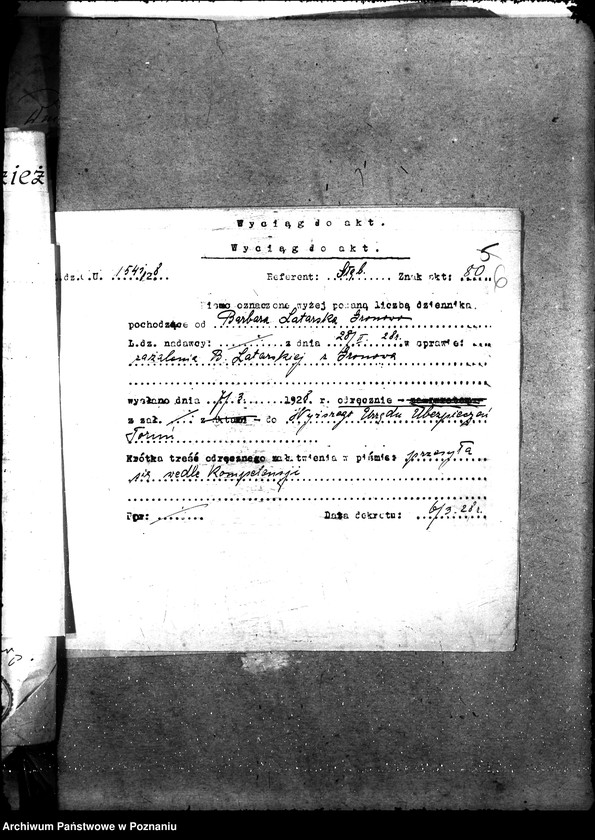 zież
Wyciąg do akt.
Wyciąg do akt.
5
6
L.dz.O.U. 1547/28 Referent: Stąb. Znak akt: 80
Pismo oznaczone wyżej podaną liczbą dziennika
pochodzące od Barbara Latarska Gronowo
L.dz. nadawcy: / z dnia 28/II 28r. w sprawie:
zażalenia B. Latarskiej z Gronowa
wysłano dnia 7/3. 1928 r. odręcznie -
z zał. / z aktami - do Wyższego Urzędu Ubezpieczeń
Toruń
Krótka treść odręcznego załatwienia w piśmie: przesyła
się wedle kompetencji
Data dekretu: 6/3.28r.
Archiwum Państwowe w Poznaniu